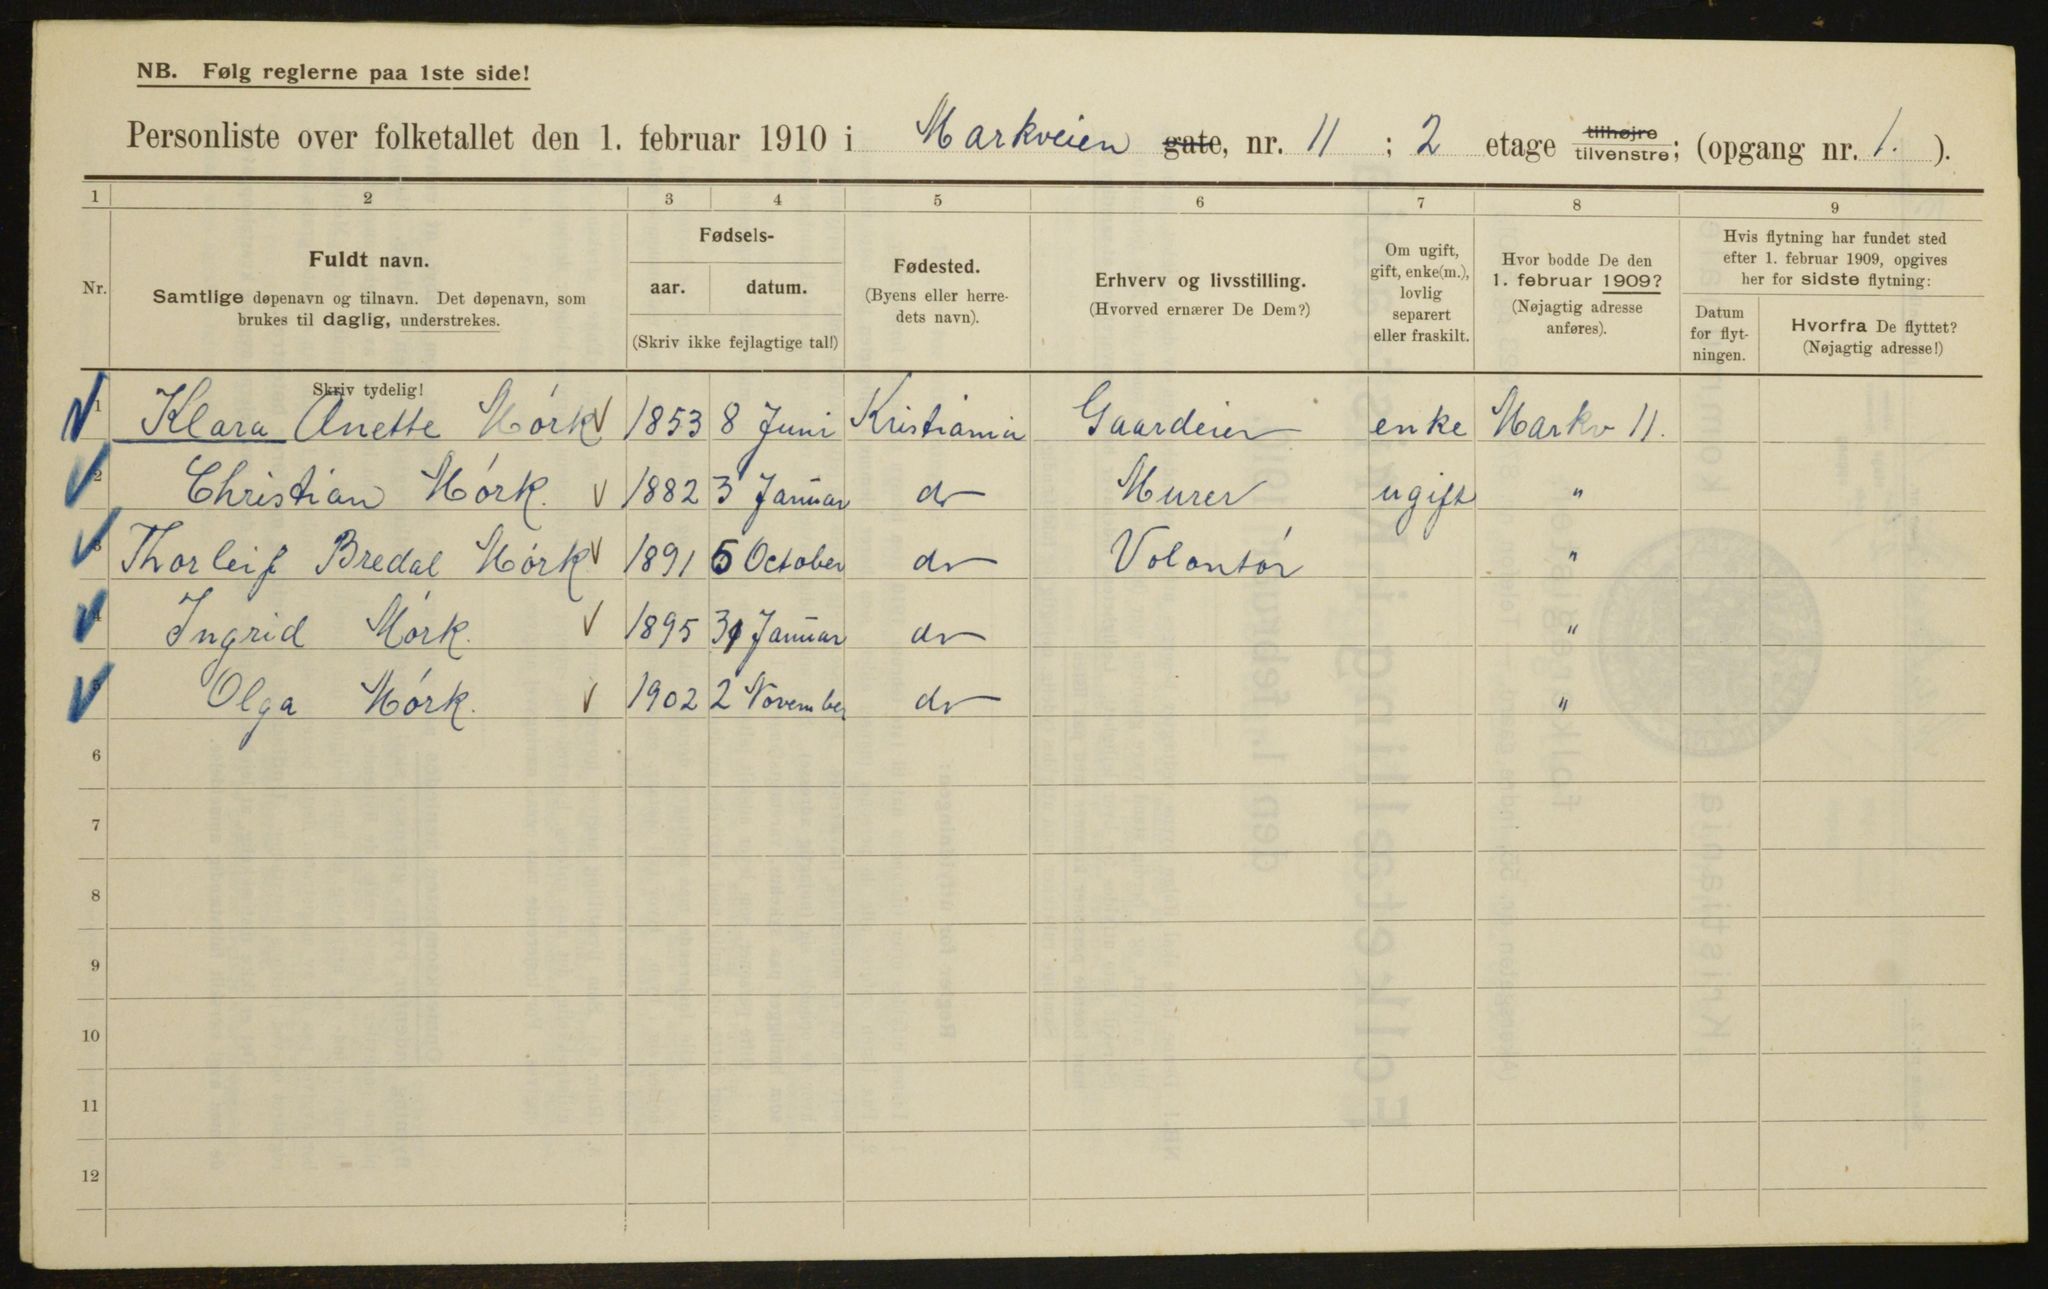 NB. Følg reglerne paa 1ste side!
Personliste over folketallet den 1. februar 1910 i Markveien gate, nr. 11 ; 2 etage tilhøjre tilvenstre; (opgang nr. 1. ).
1 2 3 4 5 6 7 8 9
Nr.
Fuldt navn.
Samtlige døpenavn og tilnavn. Det døpenavn, som
brukes til daglig, understrekes.
Fødsels-
aar. datum.
(Skriv ikke fejlagtige tal!)
Fødested.
(Byens eller herre-
dets navn).
Erhverv og livsstilling.
(Hvorved ernærer De Dem?)
Om ugift,
gift, enke(m.),
lovlig
separert
eller fraskilt.
Hvor bodde De den
1. februar 1909?
(Nøjagtig adresse
anføres).
Hvis flytning har fundet sted
efter 1. februar 1909, opgives
her for sidste flytning:
Datum
for flyt-
ningen.
Hvorfra De flyttet?
(Nøjagtig adresse!)
Skriv tydelig!
1 Klara Anette Mørk 1853 8 Juni Kristiania Gaardeier enke Markv 11.
2 Christian Mórk. 1882 3 Januar do Murer ugift "
3 Thorleif Bredal Mórk 1891 5 October do Volontór "
4 Ingrid Mórk. 1895 31 Januar do "
5 Olga Mórk. 1902 2 November do "
6
7
8
9
10
11
12